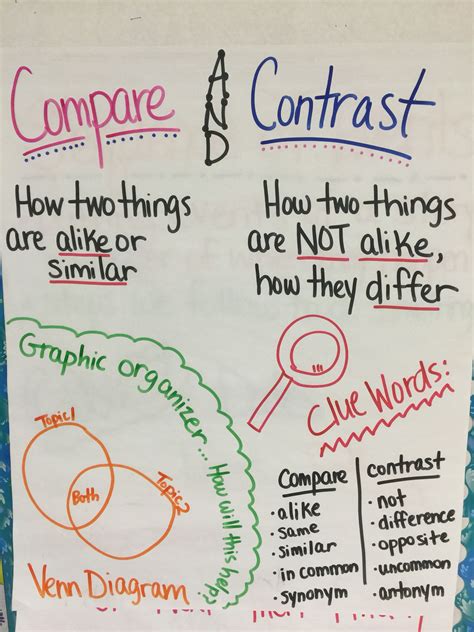 Compare AND Contrast
How two things
are alike or
similar
How two things
are NOT alike,
how they differ
Graphic organizer... How will this help?
Topic 1
Both
Topic 2
Venn Diagram
Clue Words:
Compare
• alike
• same
• similar
• in common
• synonym
contrast
• not
• difference
• opposite
• uncommon
• antonym